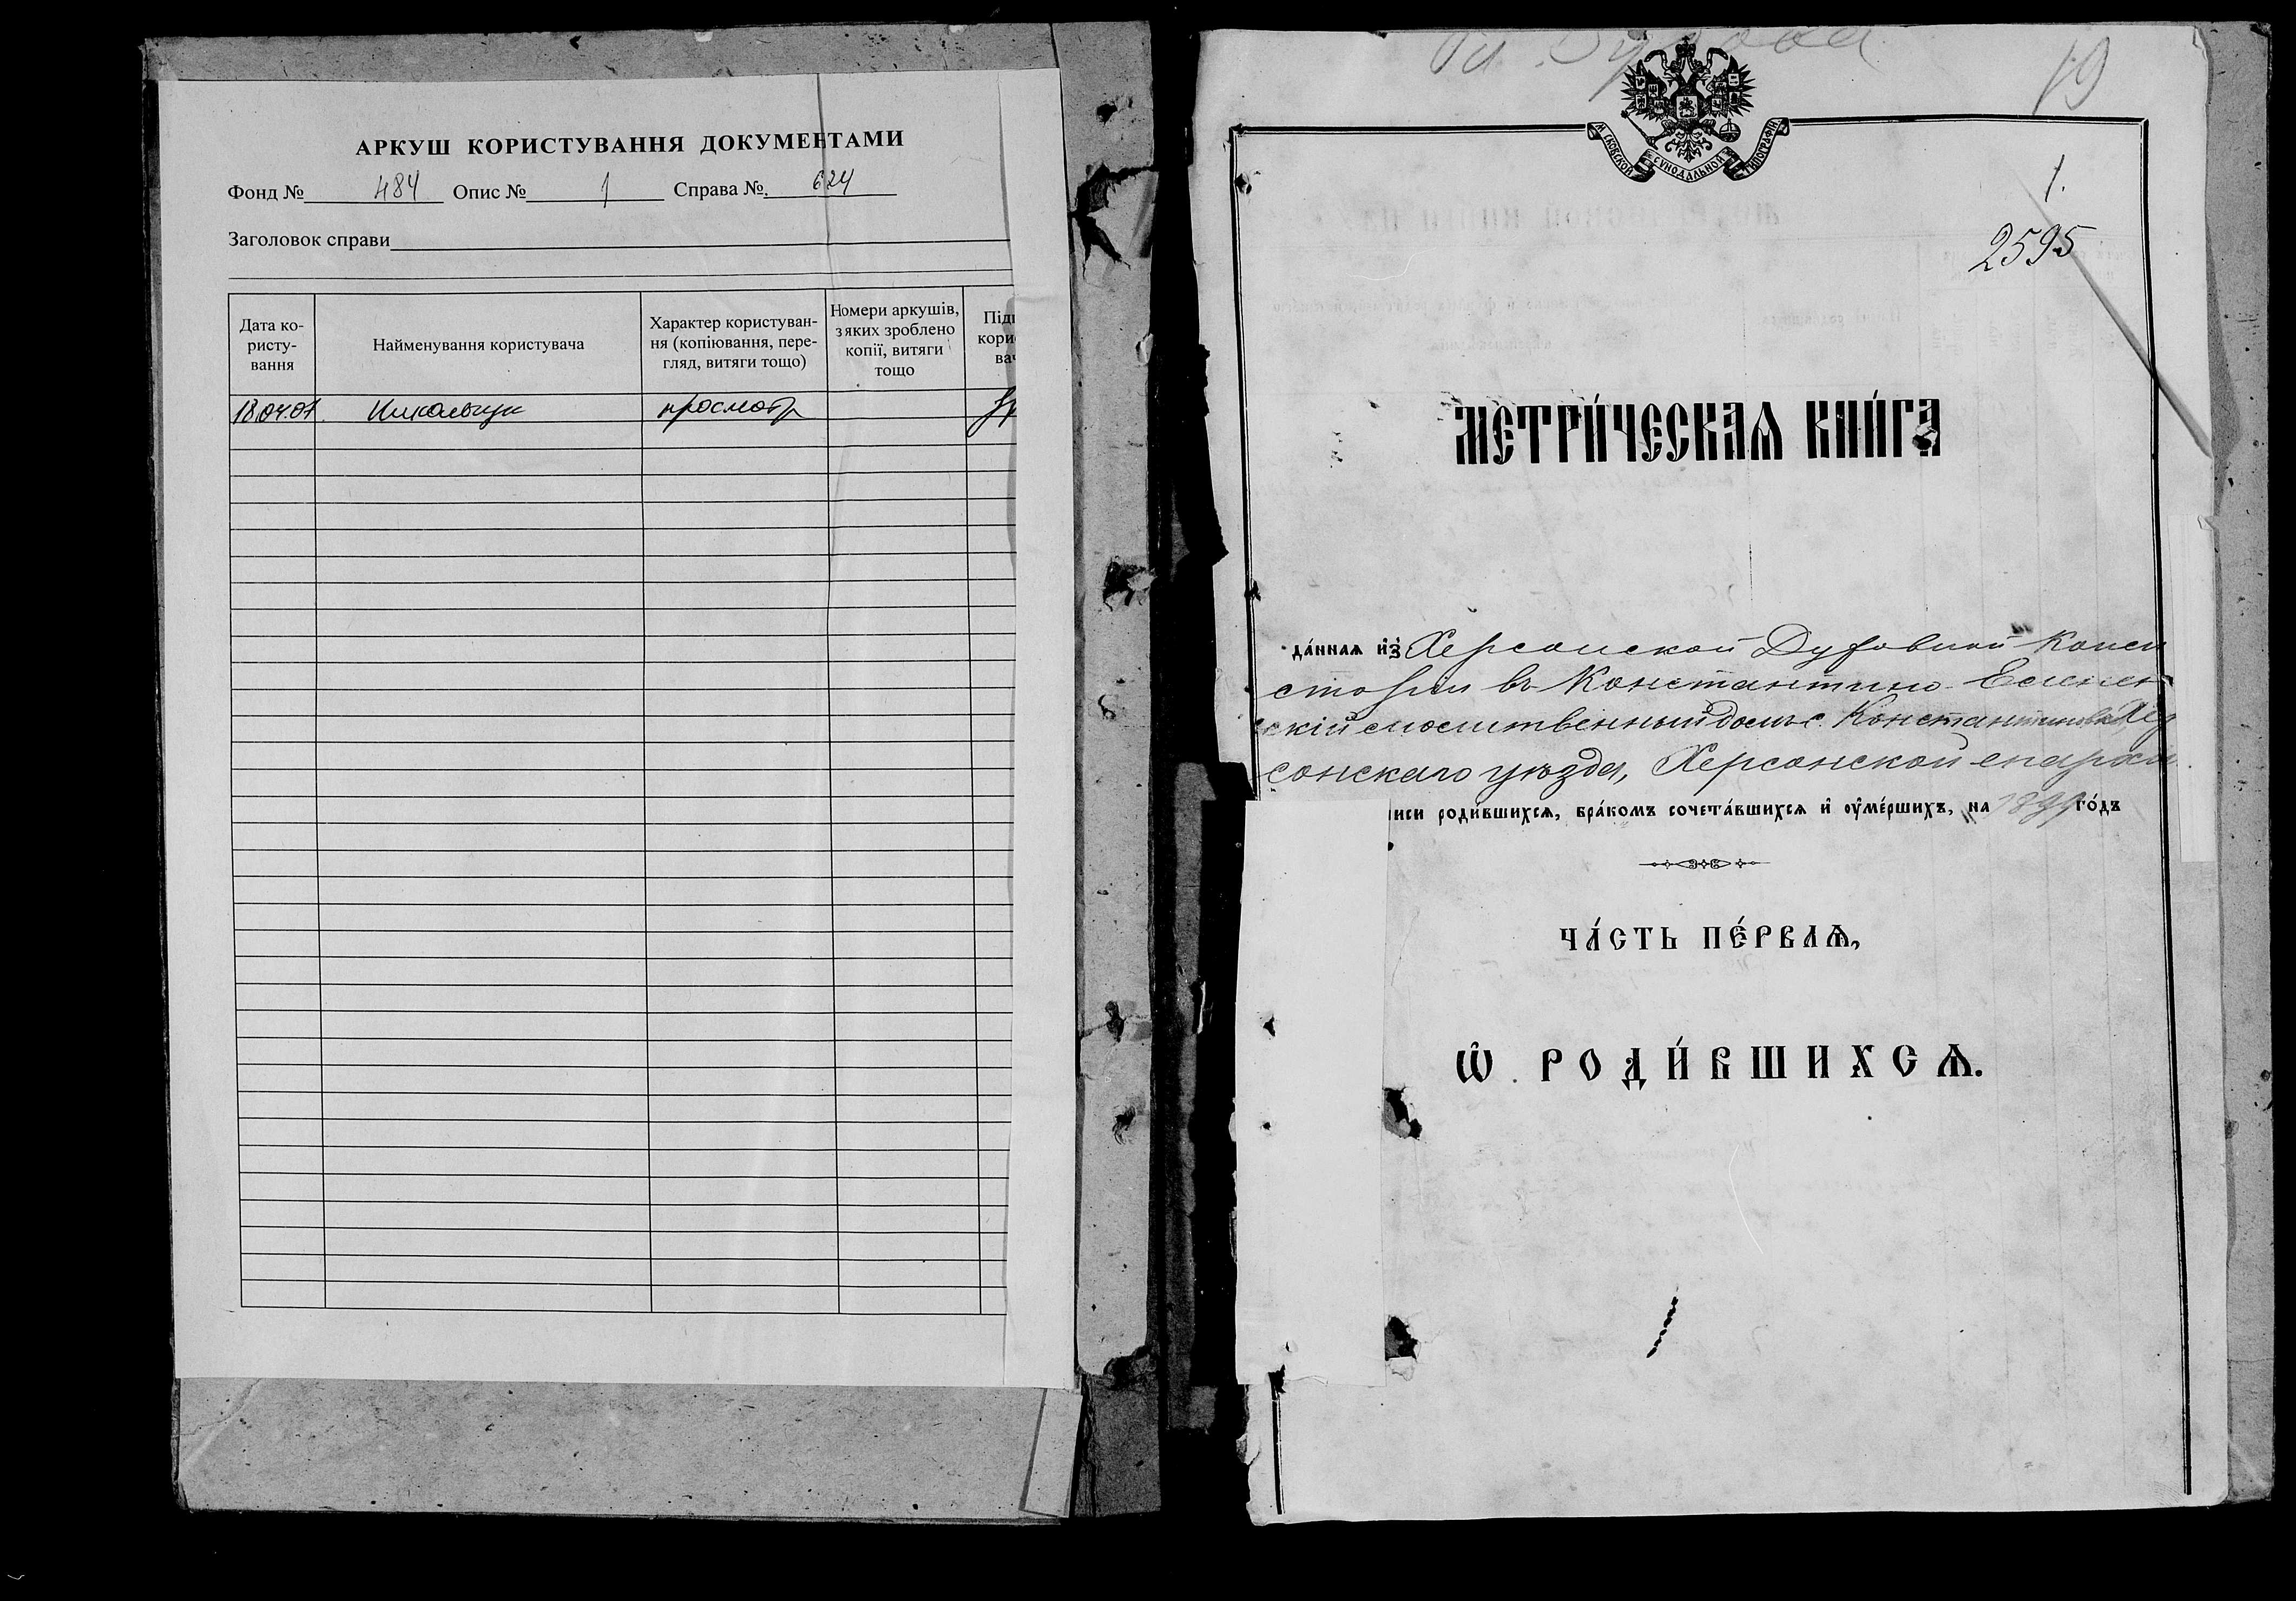 АРКУШ КОРИСТУВАННЯ ДОКУМЕНТАМИ
Фонд № 484 Опис № 1 Справа №. 624
Заголовок справи
Дата ко-
ристу-
вання
Найменування користувача
Характер користуван-
ня (копіювання, пере-
гляд, витяги тощо)
Номери аркушів,
з яких зроблено
копії, витяги
тощо
18.04.07. просмотр
19
М СКОВСКОЙ СѴНОДАЛЬНОЙ ТИПОГРАФІИ
1.
2595
МЕТРИ́ЧЕСКАѦ КНИ́ГА
да́ннаѧ и҆з̾ Херсонской Духовной Конси
сторіи въ Константино-Еленен
скій молитвенный домъ с. Константиновки, Хер
сонскаго уѣзда, Херсонской епархіи
иси роди́вшихсѧ, бра́комъ сочета́вшихсѧ и҆ ᲂу҆ме́ршихъ, на 1899 го́дъ
ЧА́СТЬ ПЕ́РВАѦ,
Ѽ РОДИ́ВШИХСѦ.